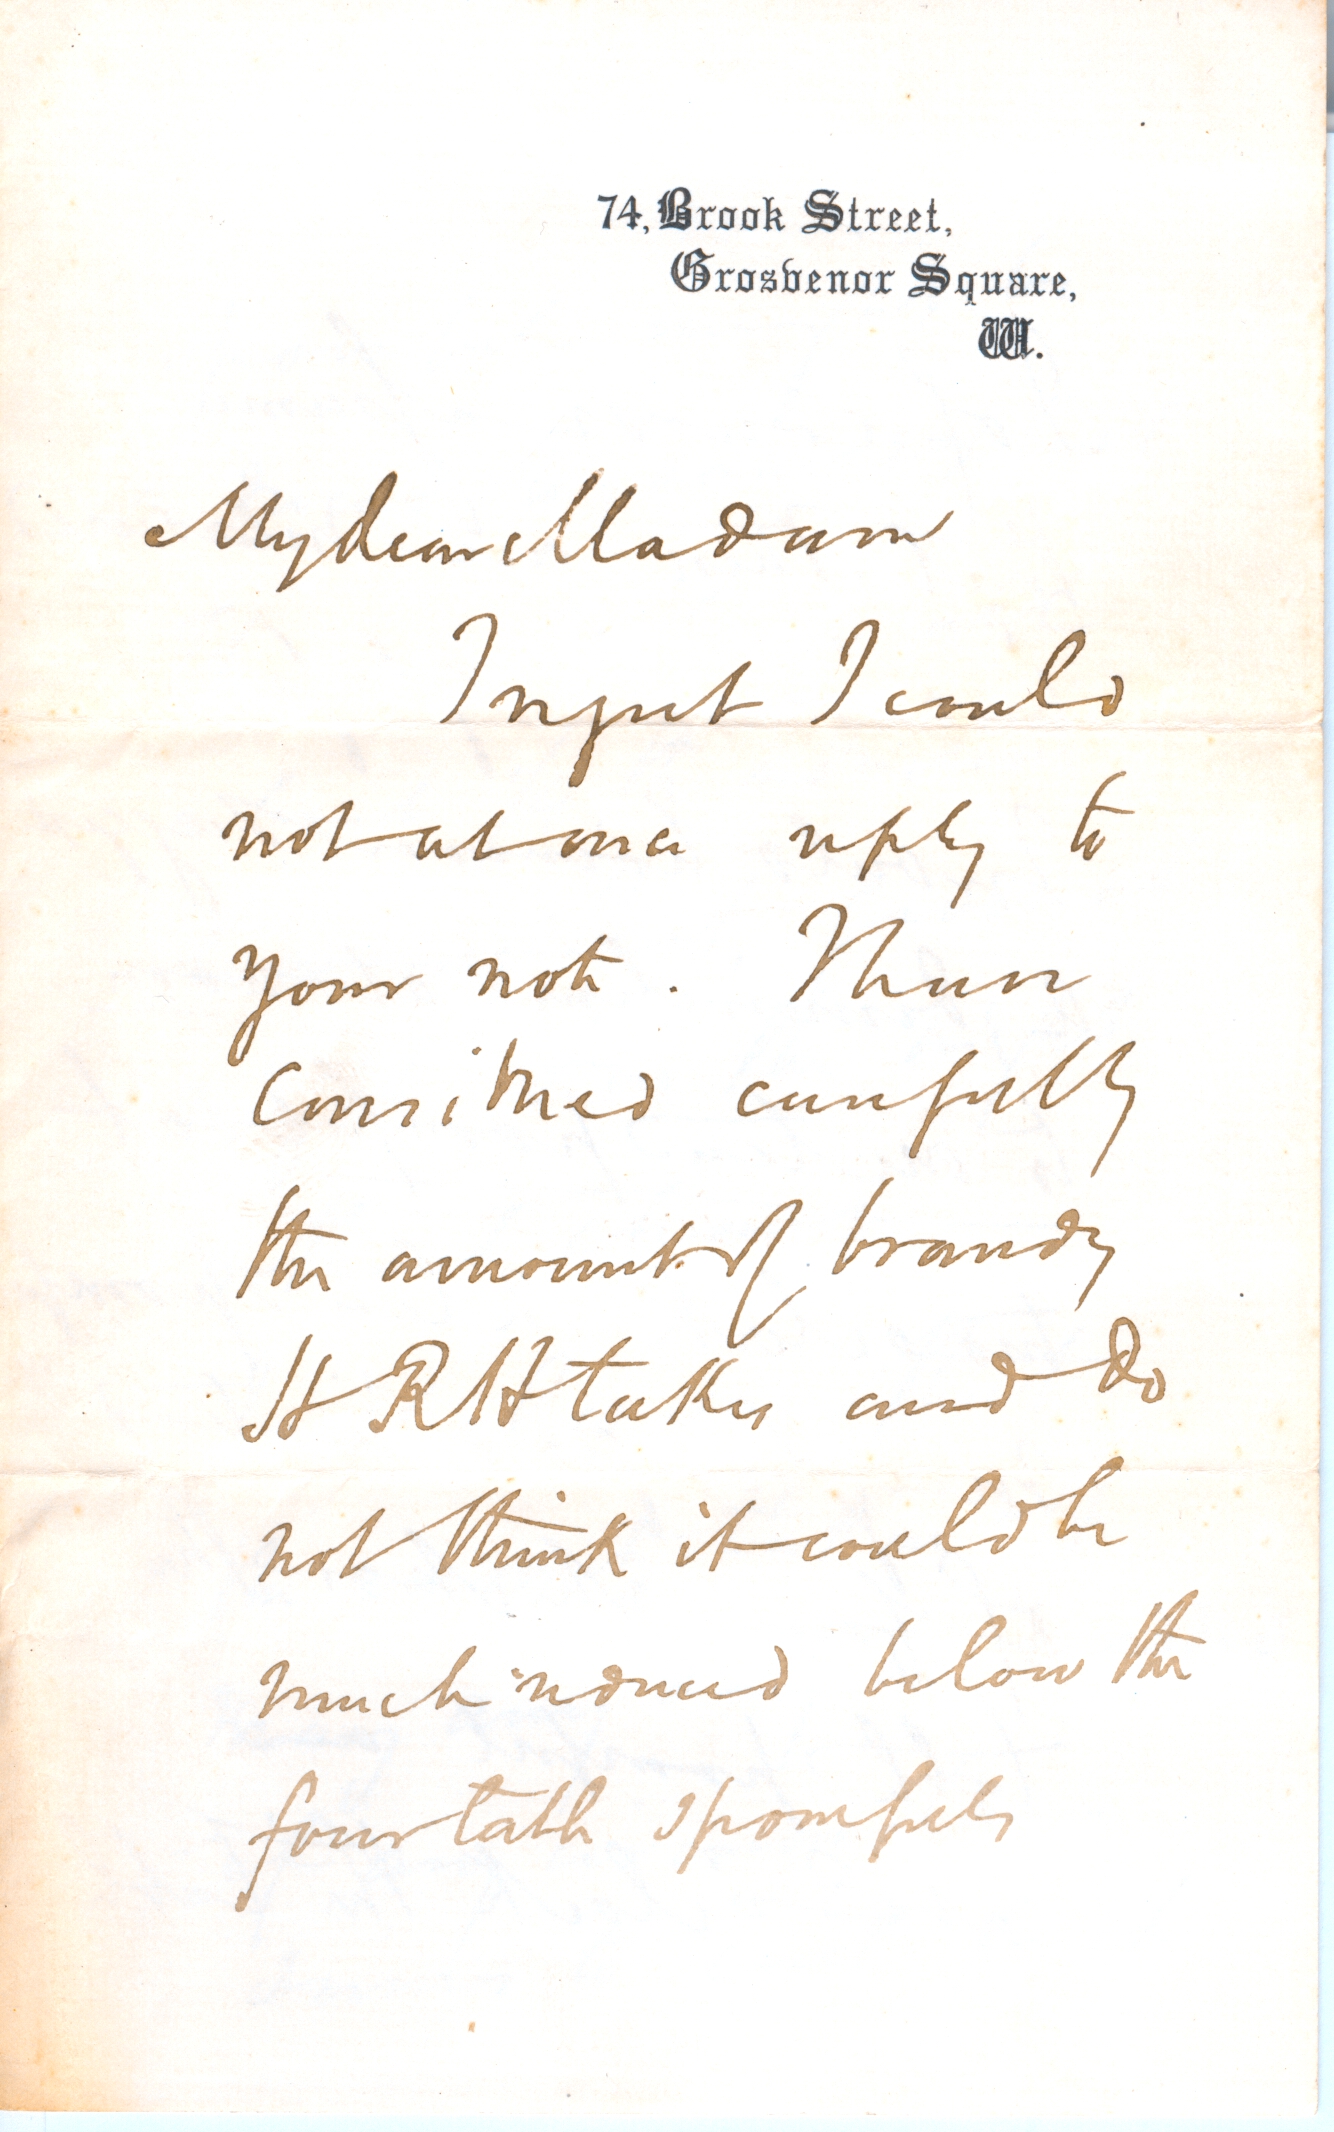 74, Brook Street,
Grosvenor Square,
W.
My dear Madam
I regret I could
not at once reply to
your note. I have
considered carefully
the amount of brandy
HRH takes and do
not think it could be
much reduced below the
four table spoonfuls